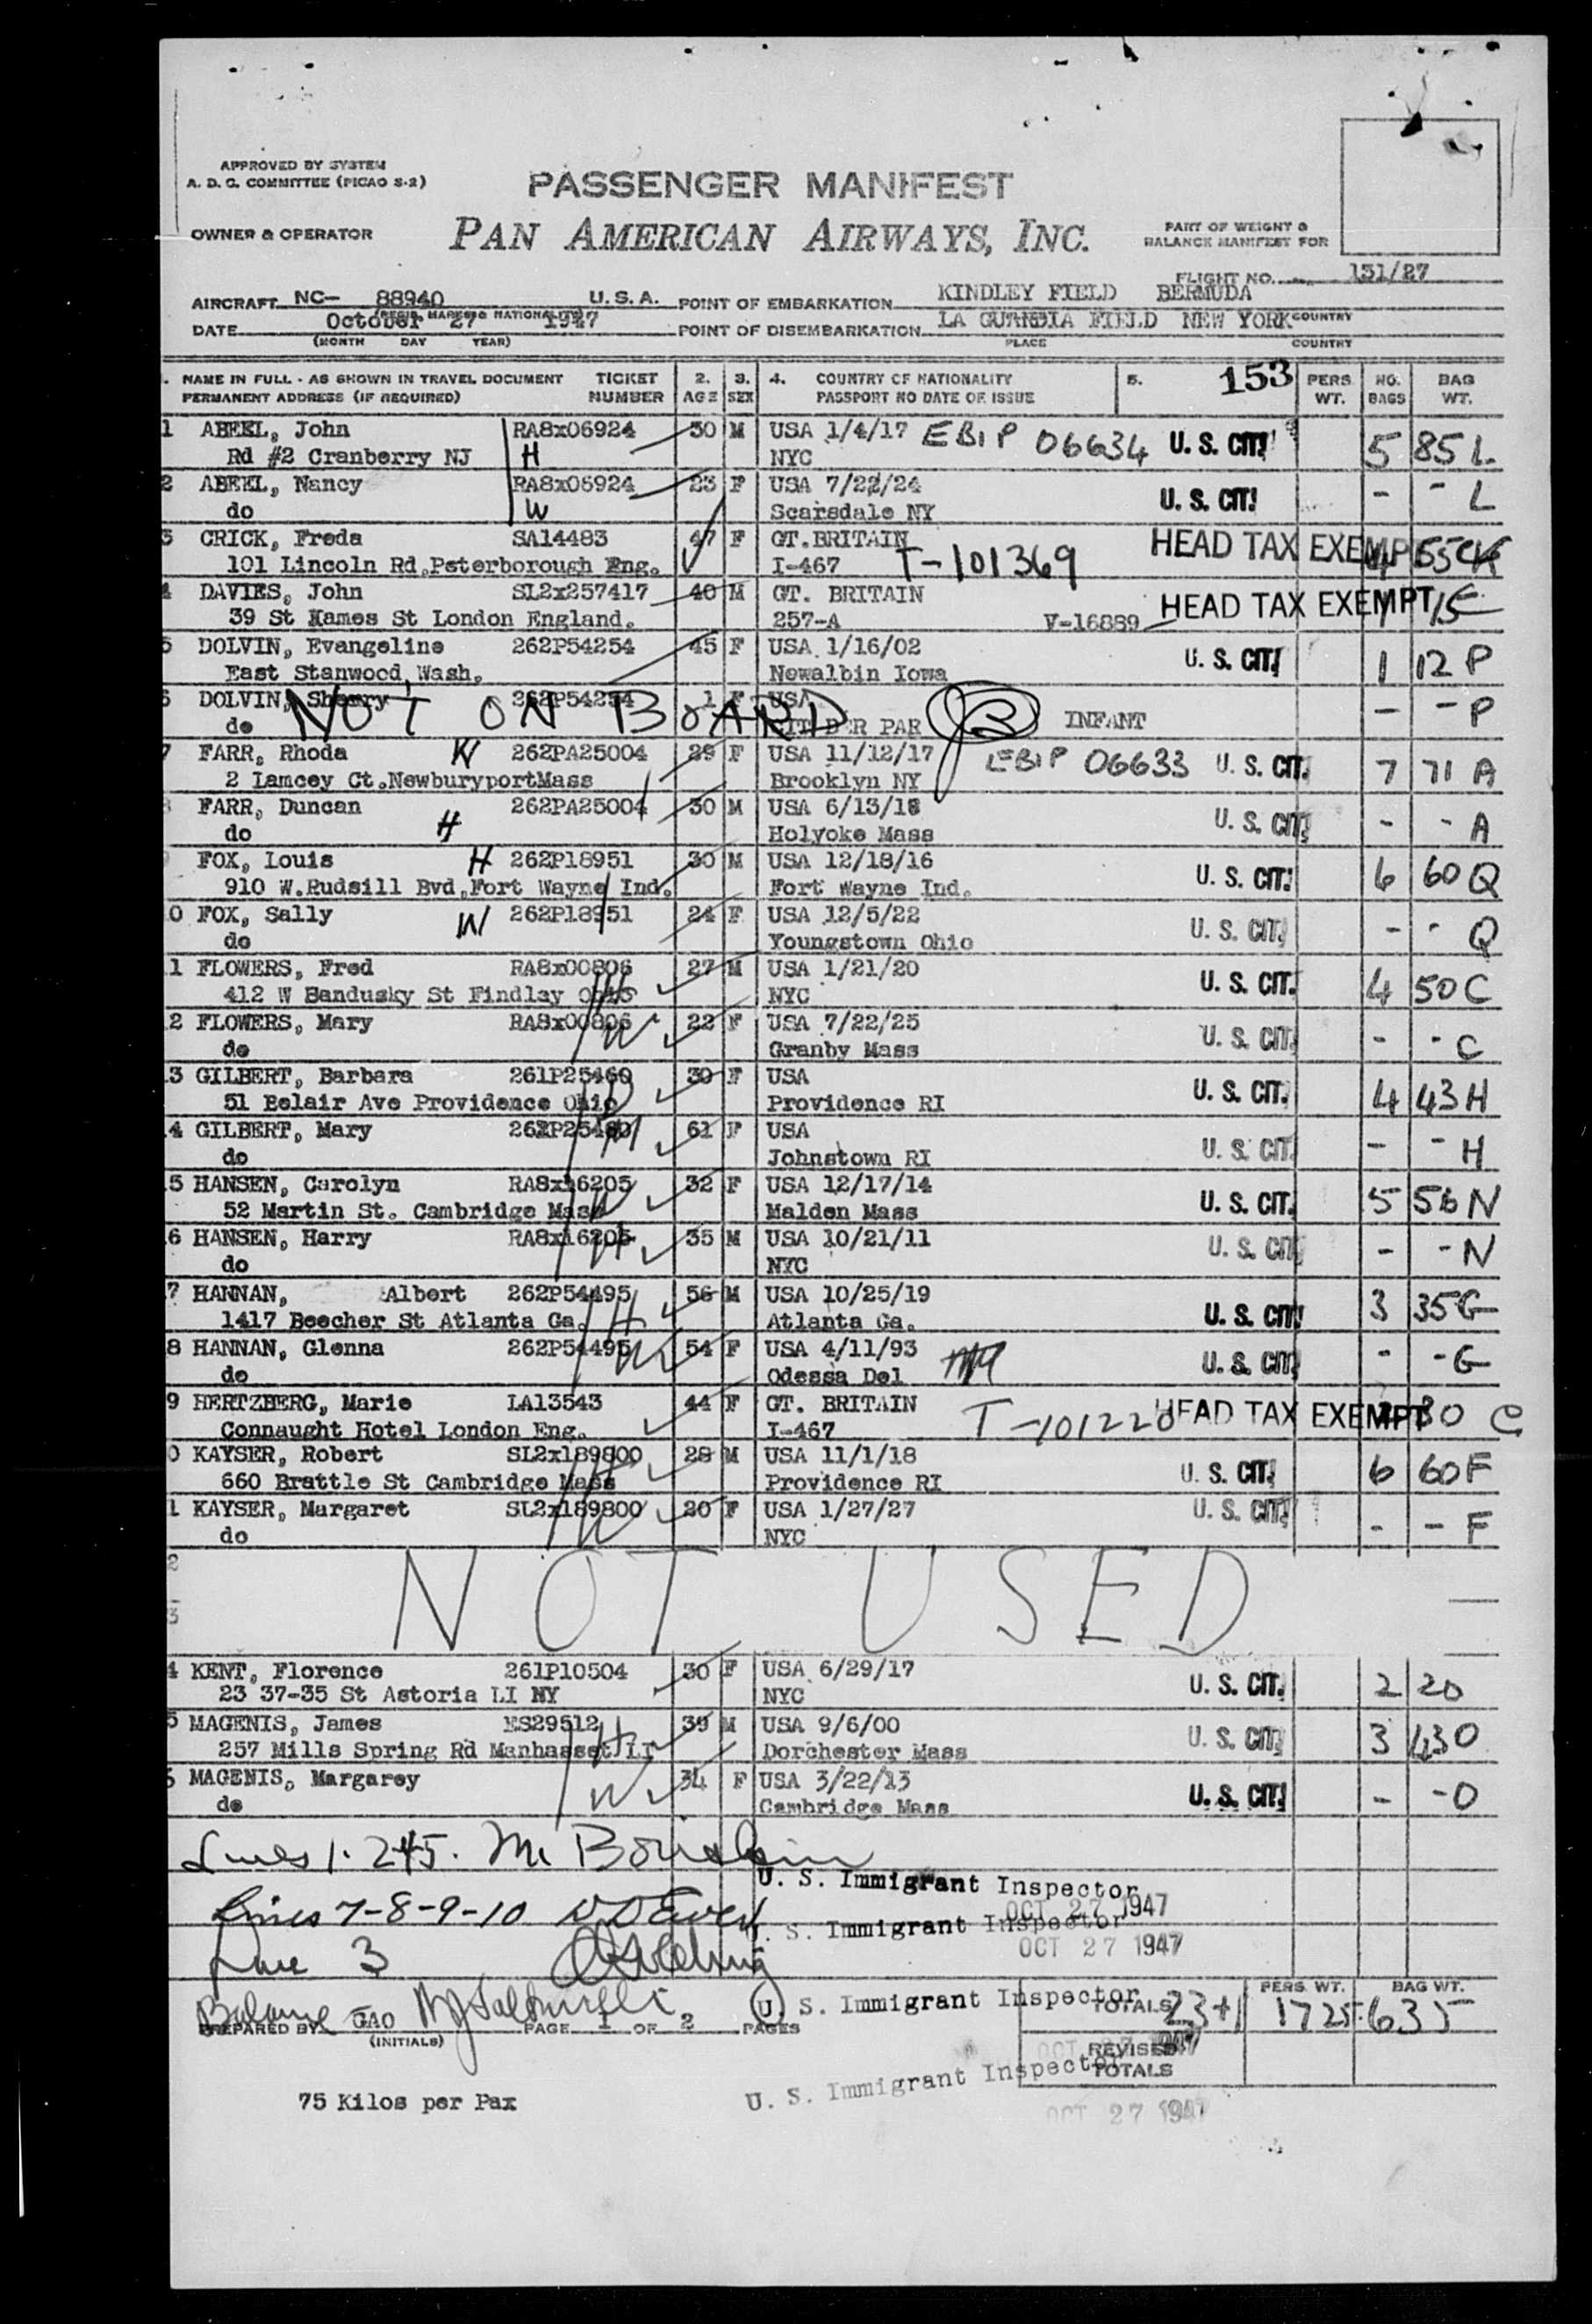 APPROVED BY SYSTEM
A. D. C. COMMITTEE (PICAO S-2)
PASSENGER MANIFEST
OWNER & OPERATOR
PAN AMERICAN AIRWAYS, INC.
PART OF WEIGHT &
BALANCE MANIFEST FOR
FLIGHT NO. 131/27
AIRCRAFT NC- 88940 U.S.A. POINT OF EMBARKATION KINDLEY FIELD BERMUDA
(REGIS. MARKS & NATIONALITY)
DATE October 27 1947 POINT OF DISEMBARKATION LA GUARDIA FIELD NEW YORK COUNTRY
(MONTH DAY YEAR) PLACE COUNTRY
1. NAME IN FULL - AS SHOWN IN TRAVEL DOCUMENT TICKET 2. 3. 4. COUNTRY OF NATIONALITY 5. 153 PERS. NO. BAG
PERMANENT ADDRESS (IF REQUIRED) NUMBER AGE SEX PASSPORT NO DATE OF ISSUE WT. BAGS WT.
1 ABEEL, John RA8x06924 30 M USA 1/4/17 EBIP 06634 U. S. CIT. 5 85 L
Rd #2 Cranberry NJ H NYC
2 ABEEL, Nancy RA8x06924 23 F USA 7/22/24 U. S. CIT. - - L
do W Scarsdale NY
3 CRICK, Freda SA14483 47 F GT.BRITAIN HEAD TAX EXEMPT
101 Lincoln Rd.Peterborough Eng. I-467 T-101369
4 DAVIES, John SL2x257417 40 M GT. BRITAIN HEAD TAX EXEMPT 15 E
39 St Hames St London England. 257-A V-16889
5 DOLVIN, Evangeline 262P54254 45 F USA 1/16/02 U. S. CIT. 1 12 P
East Stanwood, Wash. Newalbin Iowa
6 DOLVIN, Sherry 262P54254 1 F USA - - P
do NOT ON BOARD PAR INFANT
7 FARR, Rhoda W 262PA25004 29 F USA 11/12/17 EBIP 06633 U. S. CIT. 7 71 A
2 Lamcey Ct.NewburyportMass Brooklyn NY
8 FARR, Duncan 262PA25004 30 M USA 6/13/18 U. S. CIT. - - A
do H Holyoke Mass
9 FOX, Louis H 262P18951 30 M USA 12/18/16 U. S. CIT. 6 60 Q
910 W.Rudsill Bvd.Fort Wayne Ind. Fort Wayne Ind.
0 FOX, Sally W 262P18951 24 F USA 12/5/22 U. S. CIT. - - Q
do Youngstown Ohio
1 FLOWERS, Fred RA8x00806 27 M USA 1/21/20 U. S. CIT. 4 50 C
412 W Sandusky St Findlay Ohio H NYC
2 FLOWERS, Mary RA8x00806 22 F USA 7/22/25 U. S. CIT. - - C
do W Granby Mass
3 GILBERT, Barbara 261P25460 30 F USA U. S. CIT. 4 43 H
51 Belair Ave Providence Ohio Providence RI
4 GILBERT, Mary 261P25460 M 61 F USA U. S. CIT. - - H
do Johnstown RI
5 HANSEN, Carolyn RA8x16205 32 F USA 12/17/14 U. S. CIT. 5 56 N
52 Martin St. Cambridge Mass W Malden Mass
6 HANSEN, Harry RA8x16205 H 35 M USA 10/21/11 U. S. CIT. - - N
do NYC
7 HANNAN, Albert 262P54495 56 M USA 10/25/19 U. S. CIT. 3 35 G
1417 Beecher St Atlanta Ga. H Atlanta Ga.
8 HANNAN, Glenna 262P54495 W 54 F USA 4/11/93 U. S. CIT. - - G
do Odessa Del
9 HERTZBERG, Marie LA13543 44 F GT. BRITAIN T-101220 HEAD TAX EXEMPT 30
Connaught Hotel London Eng. I-467
0 KAYSER, Robert SL2x189800 28 M USA 11/1/18 U. S. CIT. 6 60 F
660 Brattle St Cambridge Mass H Providence RI
1 KAYSER, Margaret SL2x189800 20 F USA 1/27/27 U. S. CIT. - - F
do W NYC
2
NOT USED
3
4 KENT, Florence 261P10504 30 F USA 6/29/17 U. S. CIT. 2 20
23 37-35 St Astoria LI NY NYC
5 MAGENIS, James ES29512 39 M USA 9/6/00 U. S. CIT. 3 43 O
257 Mills Spring Rd Manhasset LI H Dorchester Mass
6 MAGENIS, Margarey 34 F USA 3/22/13 U. S. CIT. - - O
do W Cambridge Mass
Lines 1. 2 4 5. M.
U. S. Immigrant Inspector
OCT 27 1947
Lines 7-8-9-10
U. S. Immigrant Inspector
OCT 27 1947
Line 3
Balance
U. S. Immigrant Inspector
TOTALS 23+1 PERS. WT. 1725 BAG WT. 635
PREPARED BY GAO PAGE 1 OF 2 PAGES
(INITIALS)
OCT 27 1947
REVISED
TOTALS
U. S. Immigrant Inspector
75 Kilos per Pax
OCT 27 1947